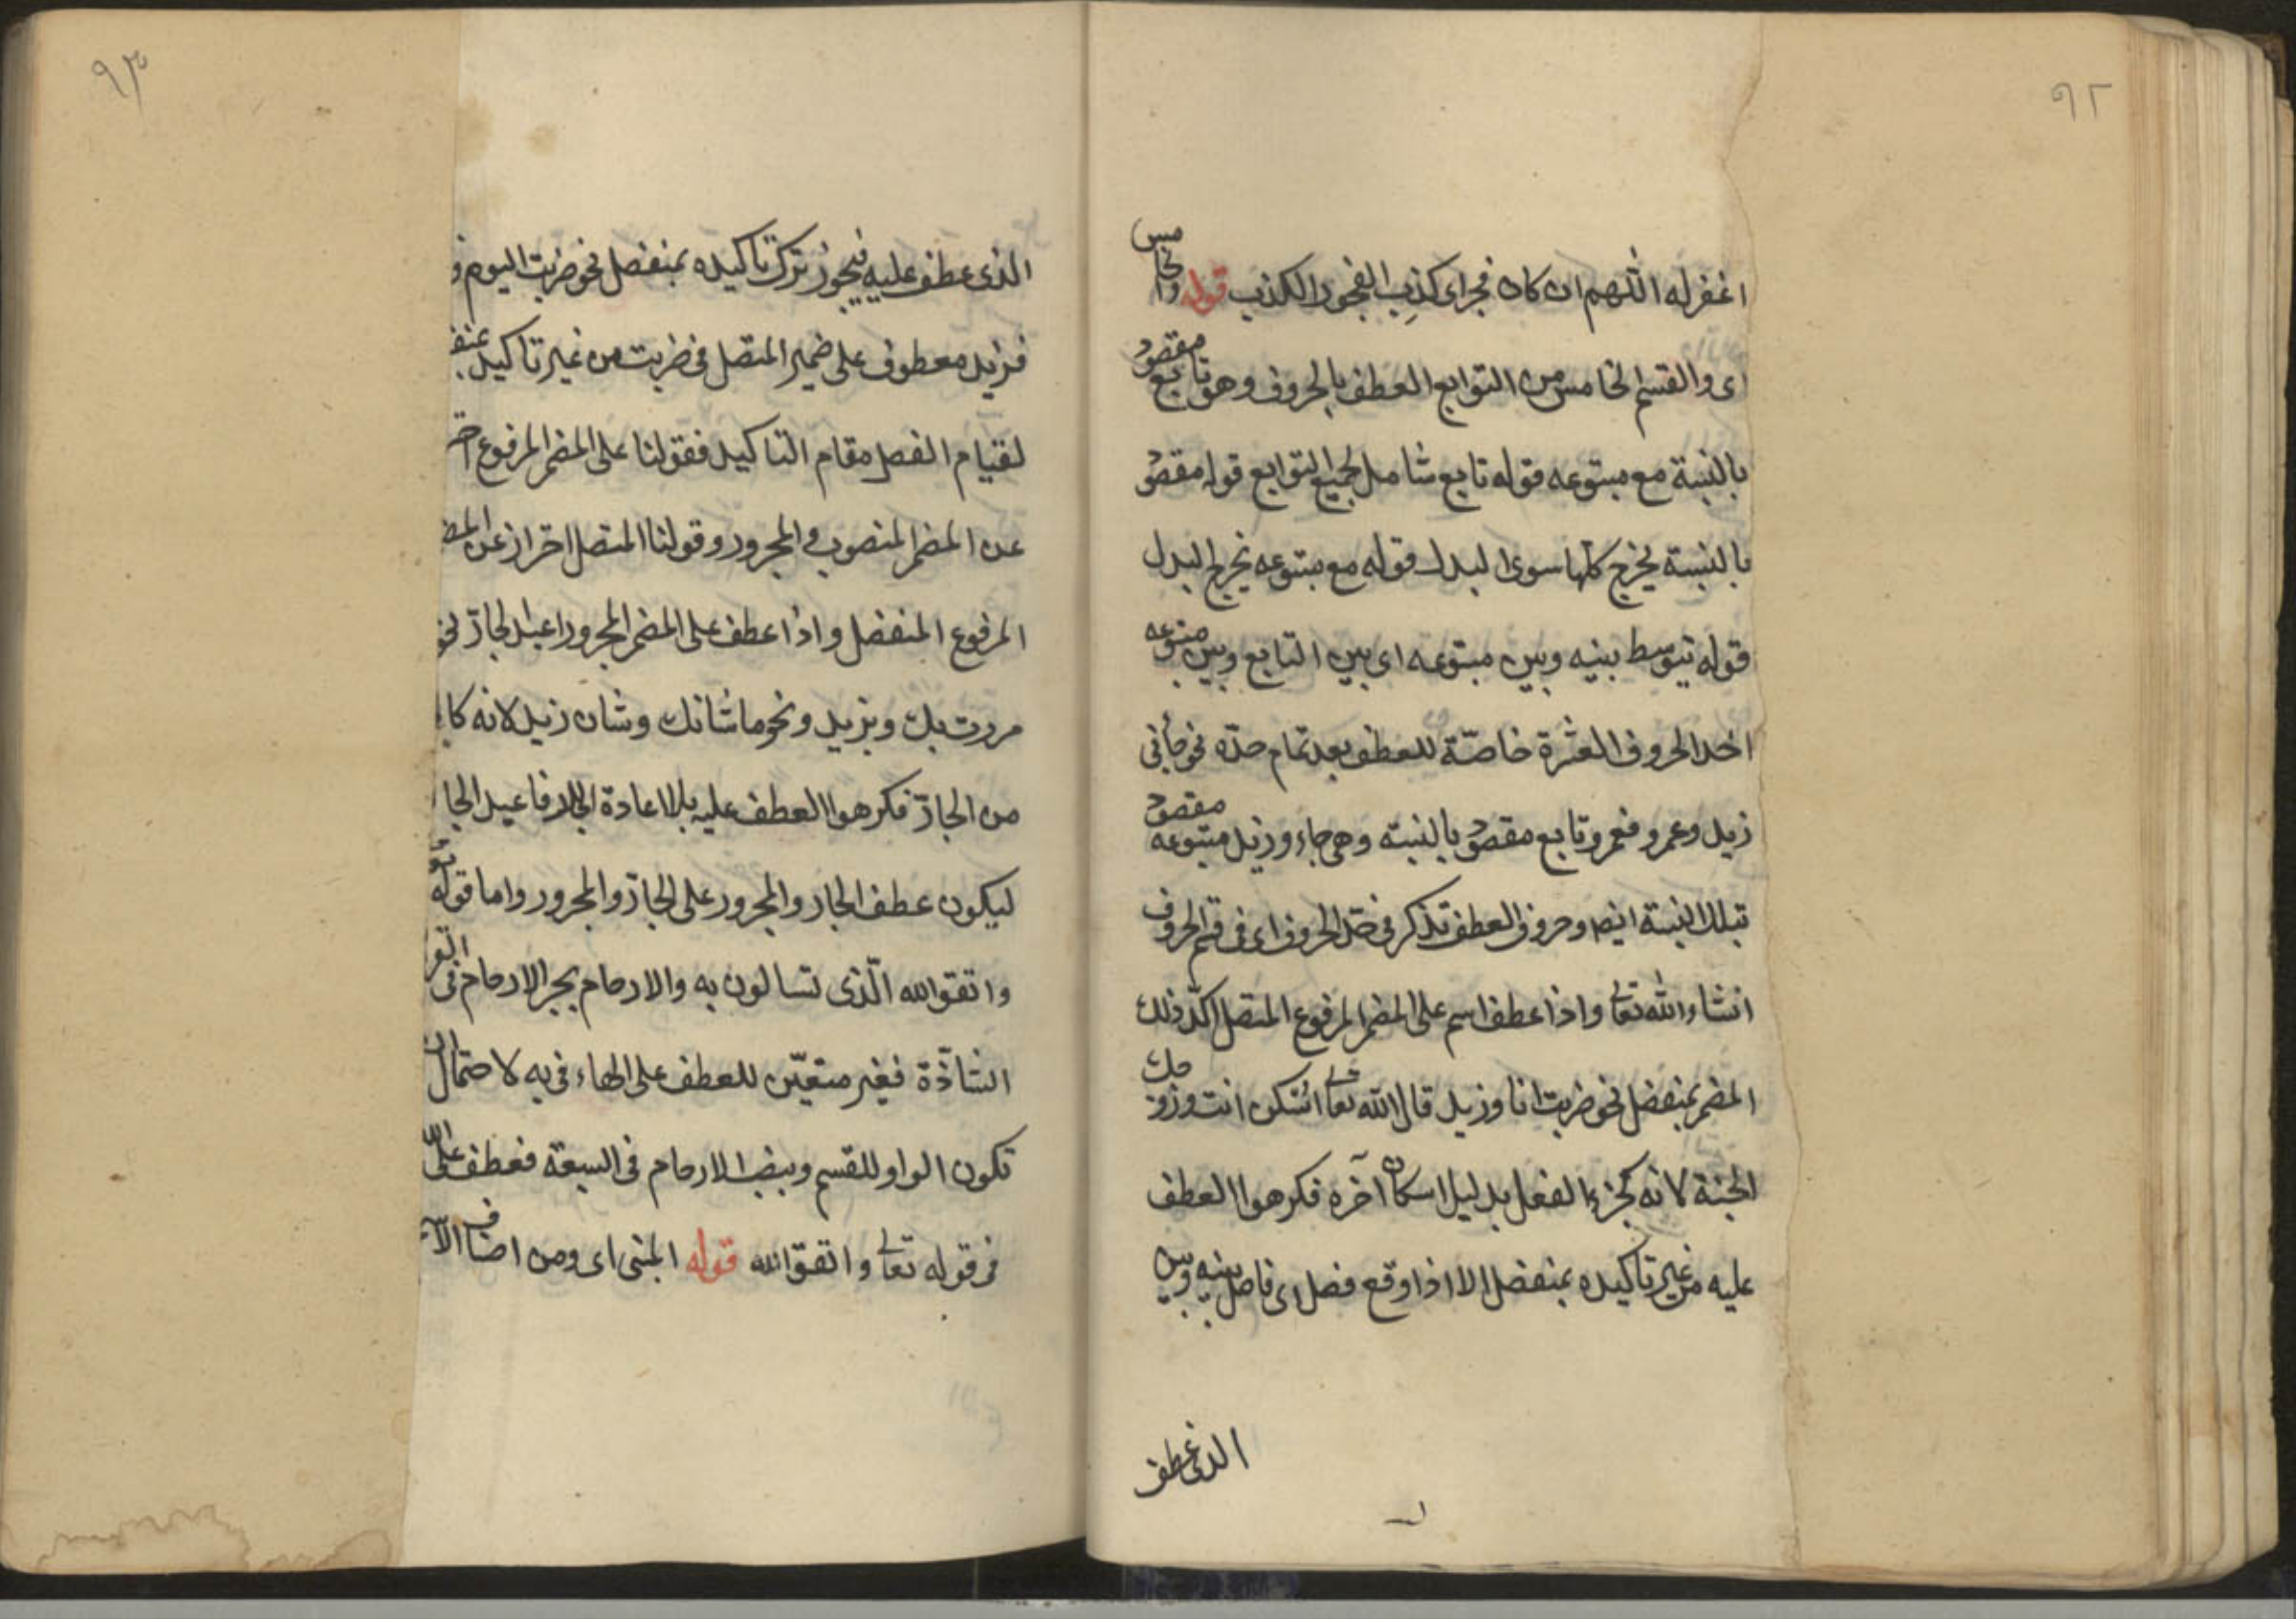 ٩٢
اغفر له اللهم ان كان فجر اى كذب الفجور الكذب قوله والخامس
اى والقسم الخامس من التوابع العطف بالحروف وهو تابع مقصود
بالنسبة مع متبوعه قوله تابع شامل لجميع التوابع قوله مقصود
بالنسبة يخرج كلها سوى البدل قوله مع متبوعه يخرج البدل
قوله يتوسط بينه وبين متبوعه اى بين التابع وبين متبوعه
احد الحروف العشرة خاصّة للعطف بعد تمام حدّه نحو جأنى
زيد وعمرو فعمرو تابع مقصود بالنسبة وهى جاء وزيد متبوعه مقصود
بتلك النسبة ايضا وحروف العطف تذكر فى حدّ الحروف اى فى قسم الحروف
انشاء الله تعالى واذا عطف اسم على المضمر المرفوع المتصل اكّد ذلك
المضمر بمنفصل نحو ضربت انا وزيد قال الله تعالى اسكن انت وزوجك
الجنة لانه كجزء الفعل بدليل اسكان آخره فكرهوا العطف
عليه من غير تاكيده بمنفصل الا اذا وقع فصل اى فاصل بينه وبين
الذى عطف
٩٣
الذى عطف عليه فيجوز ترك تاكيده بمنفصل نحو ضربت اليوم و
فزيد معطوف على ضمير المتصل فى ضربت من غير تاكيد بمنف
لقيام الفصل مقام التاكيد فقولنا على المضمر المرفوع احتر
عن المضمر المنصوب والمجرور وقولنا المتصل احتراز عن المض
المرفوع المنفصل واذا عطف على المضمر المجرور اعيد الجارّ نحو
مررت بك وبزيد ونحو ما شانك وشان زيد لانه كا
من الجارّ فكرهوا العطف عليه بلا اعادة الجار فاعيد الجا
ليكون عطف الجار والمجرور على الجارّ والمجرور واما قوله تعو
واتقوا الله الّذى تسالون به والارحام بجر الارحام فى القر
الشاذّة فغير متعيّن للعطف على الهاء فى به لاحتمال ان
تكون الواو للقسم وبنصب الارحام فى السبعة فعطف على الله
فى قوله تعالى واتقوا الله قوله المبنى اى ومن اصناف الا